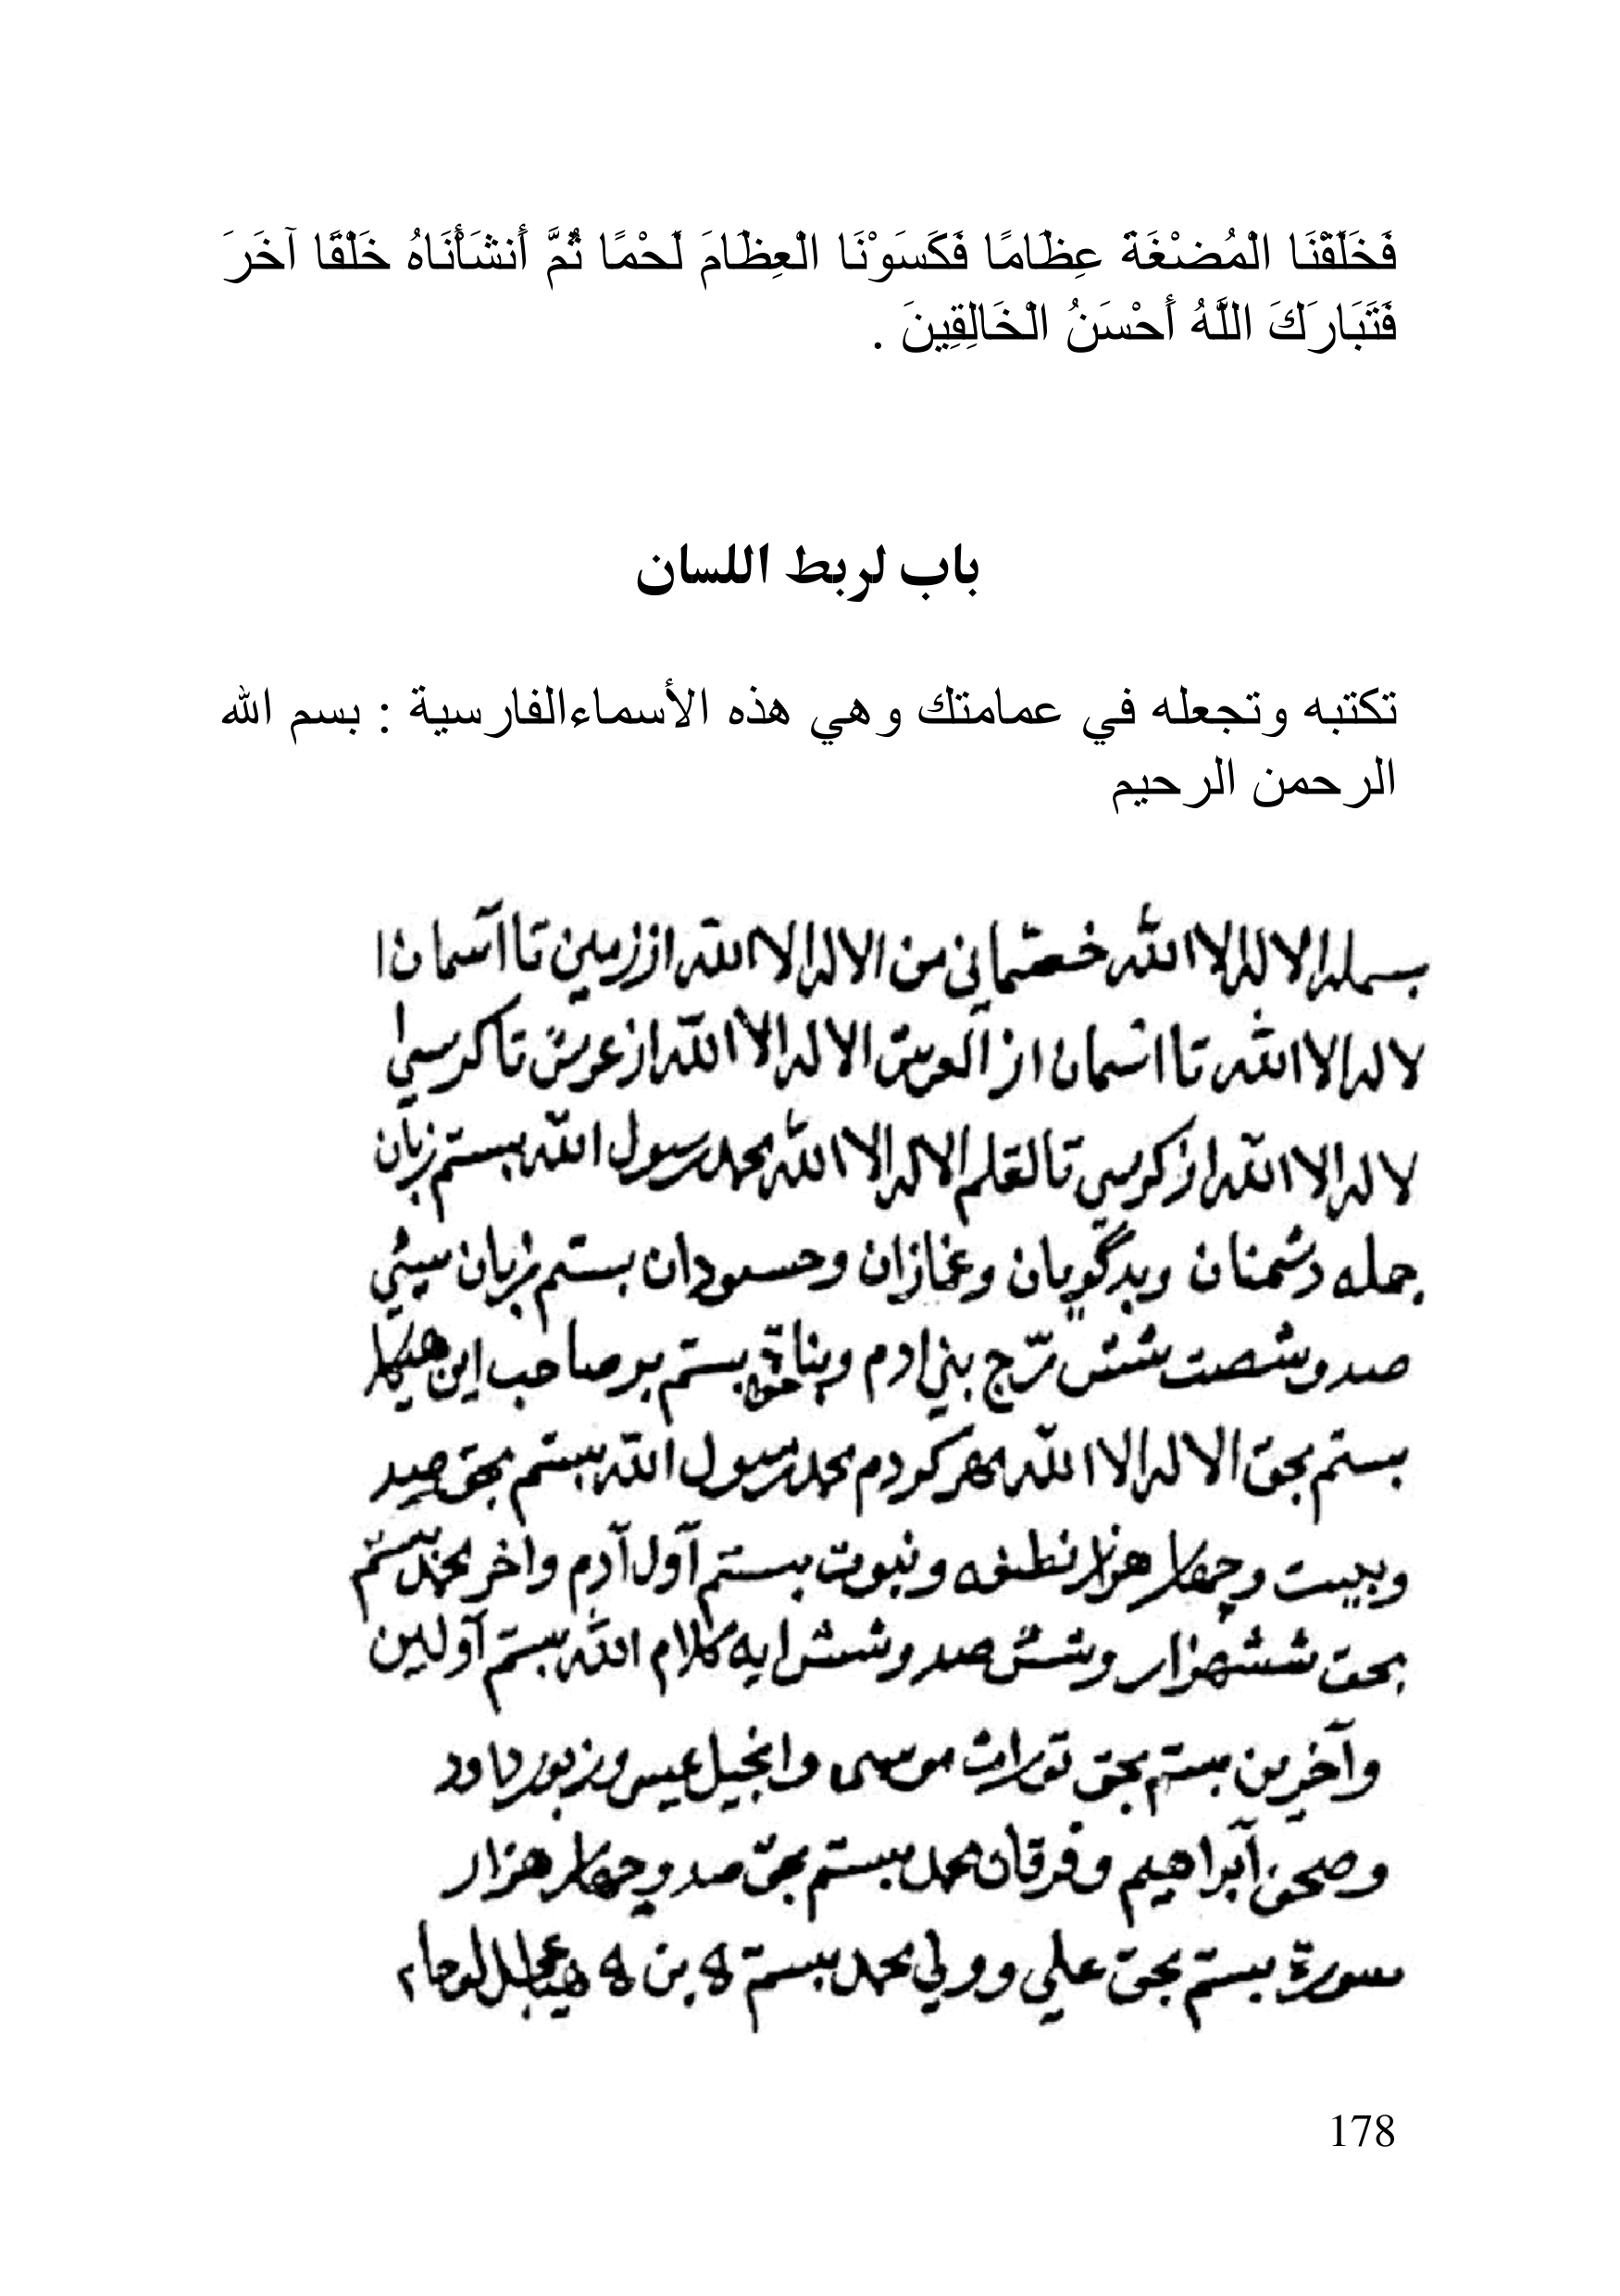 فَخَلَقْنَا الْمُضْغَةَ عِظَامًا فَكَسَوْنَا الْعِظَامَ لَحْمًا ثُمَّ أَنشَأْنَاهُ خَلْقًا آخَرَ
فَتَبَارَكَ اللَّهُ أَحْسَنُ الْخَالِقِينَ .
باب لربط اللسان
تكتبه وتجعله في عمامتك وهي هذه الأسماءالفارسية : بسم الله
الرحمن الرحيم
الا اله الا الله من الا اله الا الله از زمين تا آسمان ا
لا اله الا الله تا اسمان از العرش الا اله الا الله از عرش تا كرسي ا
لا اله الا الله از كرسي تا القلم الا اله الا الله محمد رسول الله ببستم زبان
جمله دشمنان وبدگويان وغمازان وحسودان بستم زبان سيئي
صد وشصت شش بني ادم بستم بر صاحب اين
بستم بحق الا اله الا الله مهر كردم محمد رسول الله ببستم بحق صيد
وبيست وچهار هزار نطفه ونبوت ببستم آول آدم واخر محمد بستم
بحق ششهزار وشش صد وشش ايه كلام الله ببستم آولين
وآخرين ببستم بحق تورات موسى وانجيل عيسى وزبور داود
وصحف آبراهيم وفرقان محمد ببستم بحق صد وچهار هزار
سورة ببستم بحق علي وولي محمد ببستم بن
178